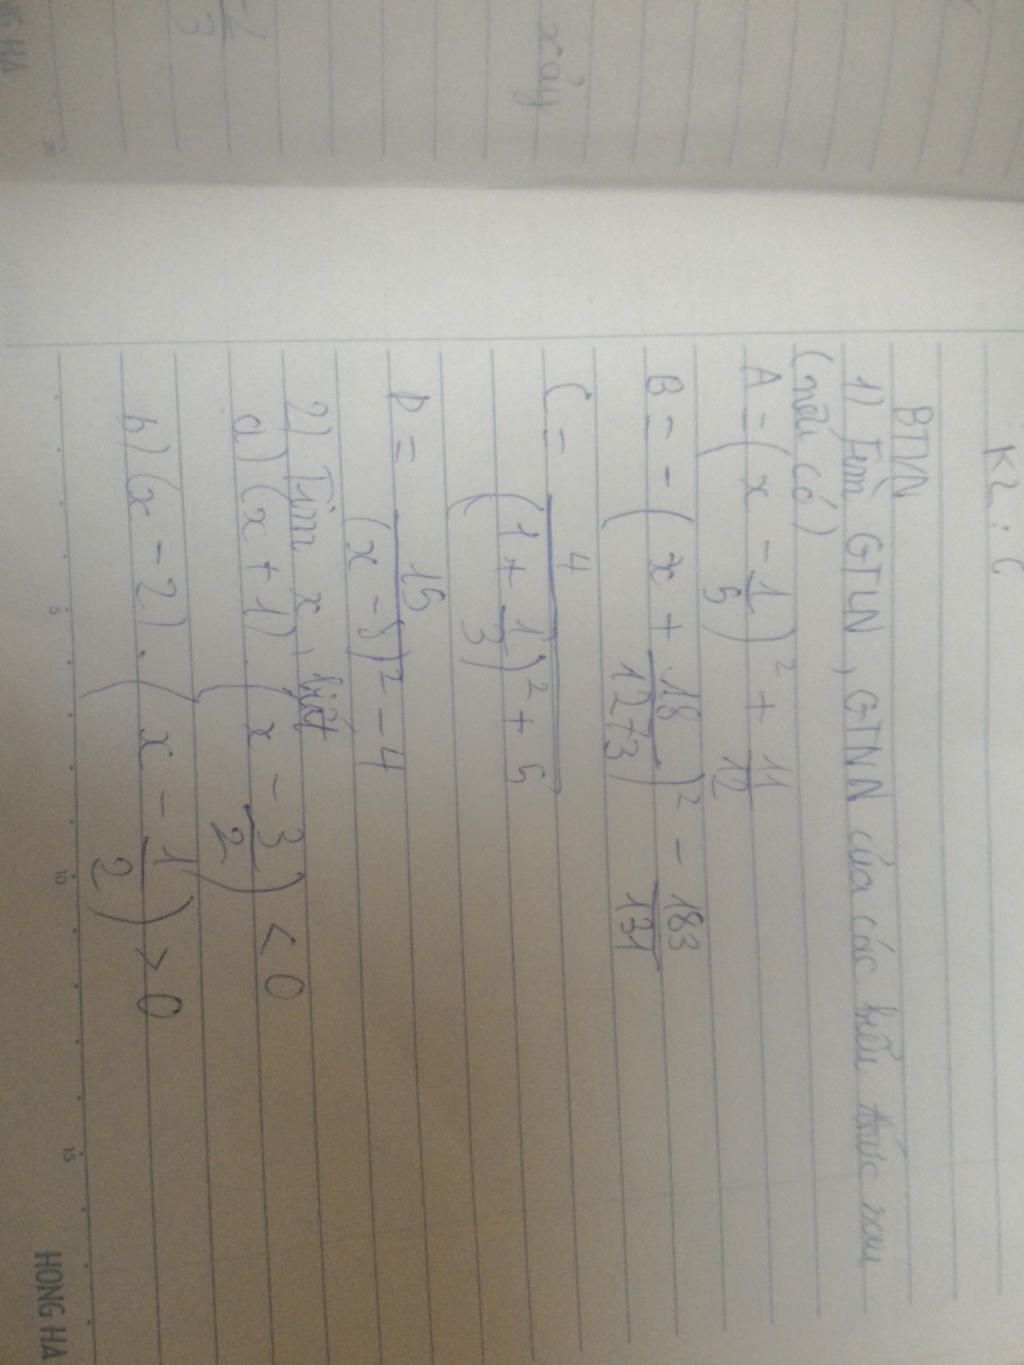 K2 :
BTVN
1) Tìm GTLN, GTNN của các biểu thức sau
(nếu có)
A = (x - 1/5)² + 11/12
B = - (x + 18/1273)² - 183/131
C = 4/((1 + 1/3)² + 5)
D = 15/((x - 8)² - 4)
2) Tìm x, biết
a) (x + 1) . (x - 3/2) < 0
b) (x - 2) . (x - 1/2) > 0
HONG HA
5
10
15
xảy
2/3
NG HA